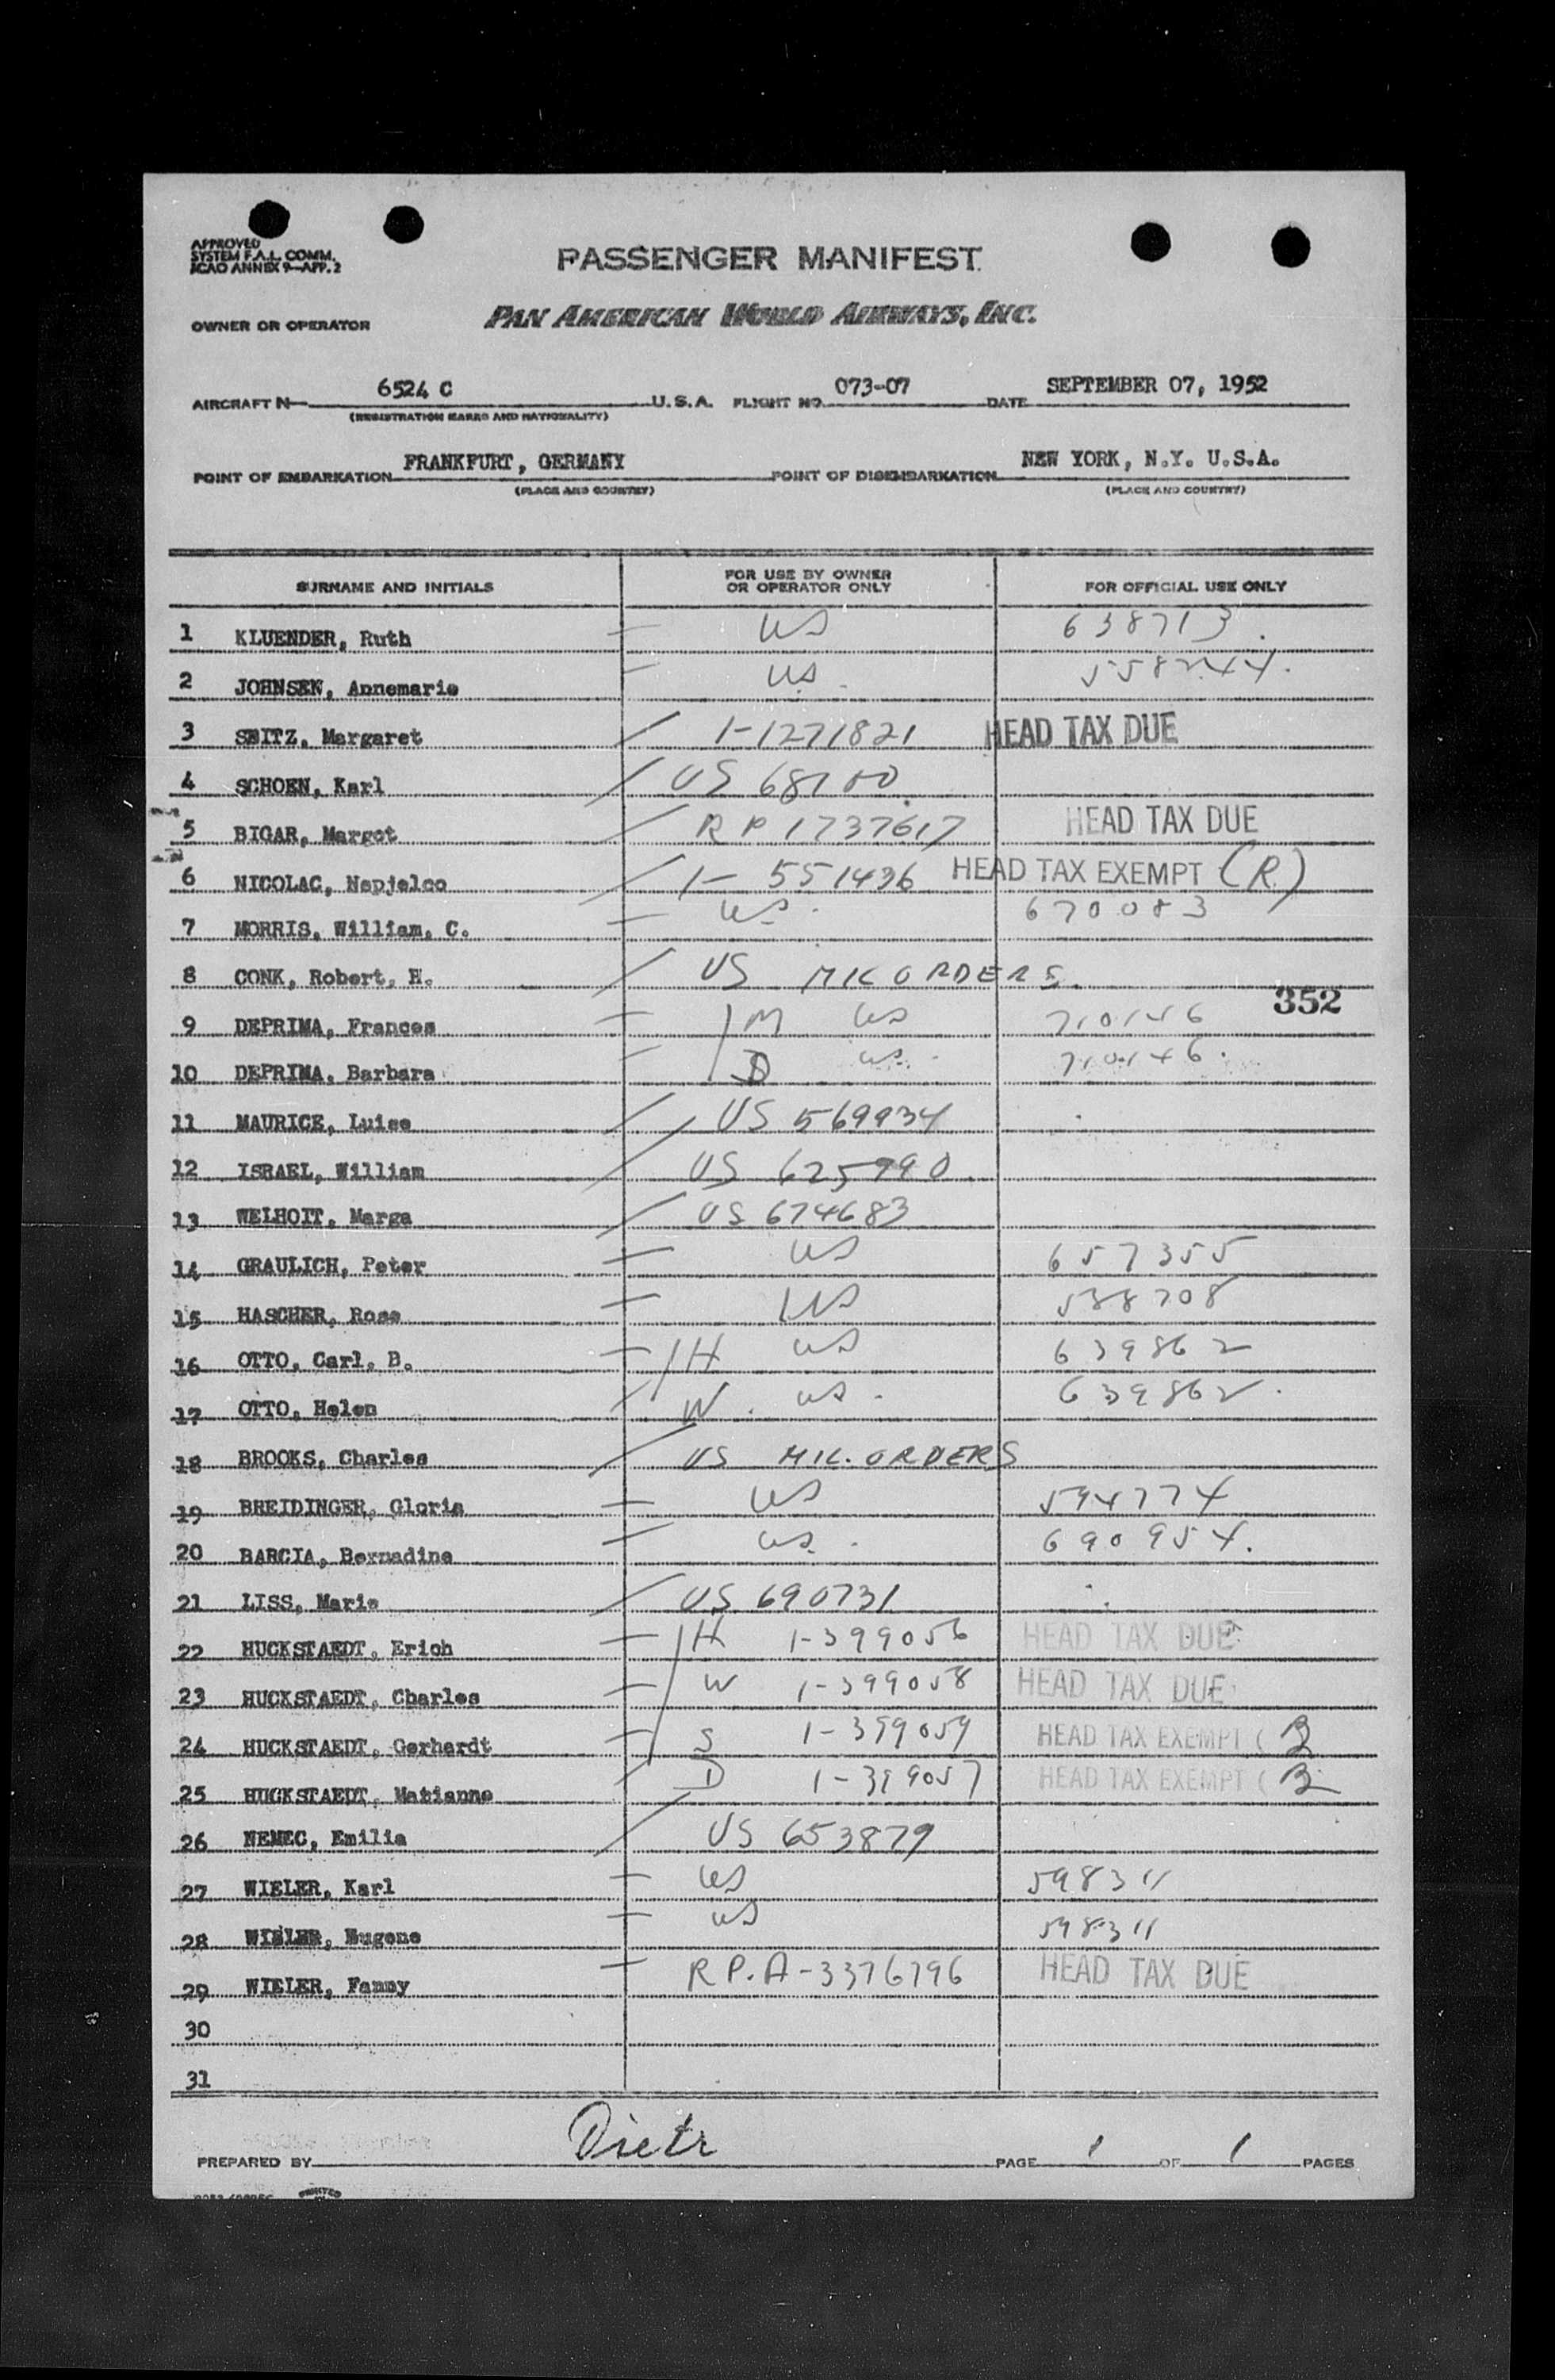 APPROVED
SYSTEM F.A.L. COMM.
ICAO ANNEX 9—APP. 2
PASSENGER MANIFEST
OWNER OR OPERATOR PAN AMERICAN WORLD AIRWAYS, INC.
AIRCRAFT N— 6524 C U.S.A. FLIGHT NO. 073-07 DATE SEPTEMBER 07, 1952
(REGISTRATION MARKS AND NATIONALITY)
POINT OF EMBARKATION FRANKFURT, GERMANY POINT OF DISEMBARKATION NEW YORK, N.Y. U.S.A.
(PLACE AND COUNTRY) (PLACE AND COUNTRY)
SURNAME AND INITIALS FOR USE BY OWNER OR OPERATOR ONLY FOR OFFICIAL USE ONLY
1 KLUENDER, Ruth — US 638713.
2 JOHNSEN, Annemarie — US. 558244.
3 SEITZ, Margaret / 1-1271821 HEAD TAX DUE
4 SCHOEN, Karl / US
5 BIGAR, Margot / RP 1737617 HEAD TAX DUE
6 NICOLAC, Nepjelco / 1- 551436 HEAD TAX EXEMPT (R)
7 MORRIS, William, C. — US. 670083
8 CONK, Robert, H. / US MIL ORDERS.
352
9 DEPRIMA, Frances — M US 710146
10 DEPRIMA, Barbara — D US. 710146.
11 MAURICE, Luise / US 569934
12 ISRAEL, William / US 625990.
13 WELHOIT, Marga / US 674683
14 GRAULICH, Peter — US 657355
15 HASCHER, Rose — US 588708
16 OTTO, Carl, B. — H US 639862
17 OTTO, Helen / W. US. 639862.
18 BROOKS, Charles / US MIL. ORDERS
19 BREIDINGER, Gloria — US 594774
20 BARCIA, Bernadine — US. 690954.
21 LISS, Marie / US 690731
22 HUCKSTAEDT, Erich — H 1-399056 HEAD TAX DUE
23 HUCKSTAEDT, Charles — W 1-399058 HEAD TAX DUE
24 HUCKSTAEDT, Gerhardt — S 1-399059 HEAD TAX EXEMPT (
25 HUCKSTAEDT, Marianne / D 1-399057 HEAD TAX EXEMPT (
26 NEMEC, Emilia / US 653879
27 WIELER, Karl — US 598311
28 WIELER, Eugene — US 598311
29 WIELER, Fanny — RP.A-3376796 HEAD TAX DUE
30
31
PREPARED BY Dietr PAGE 1 OF 1 PAGES
PRINTED